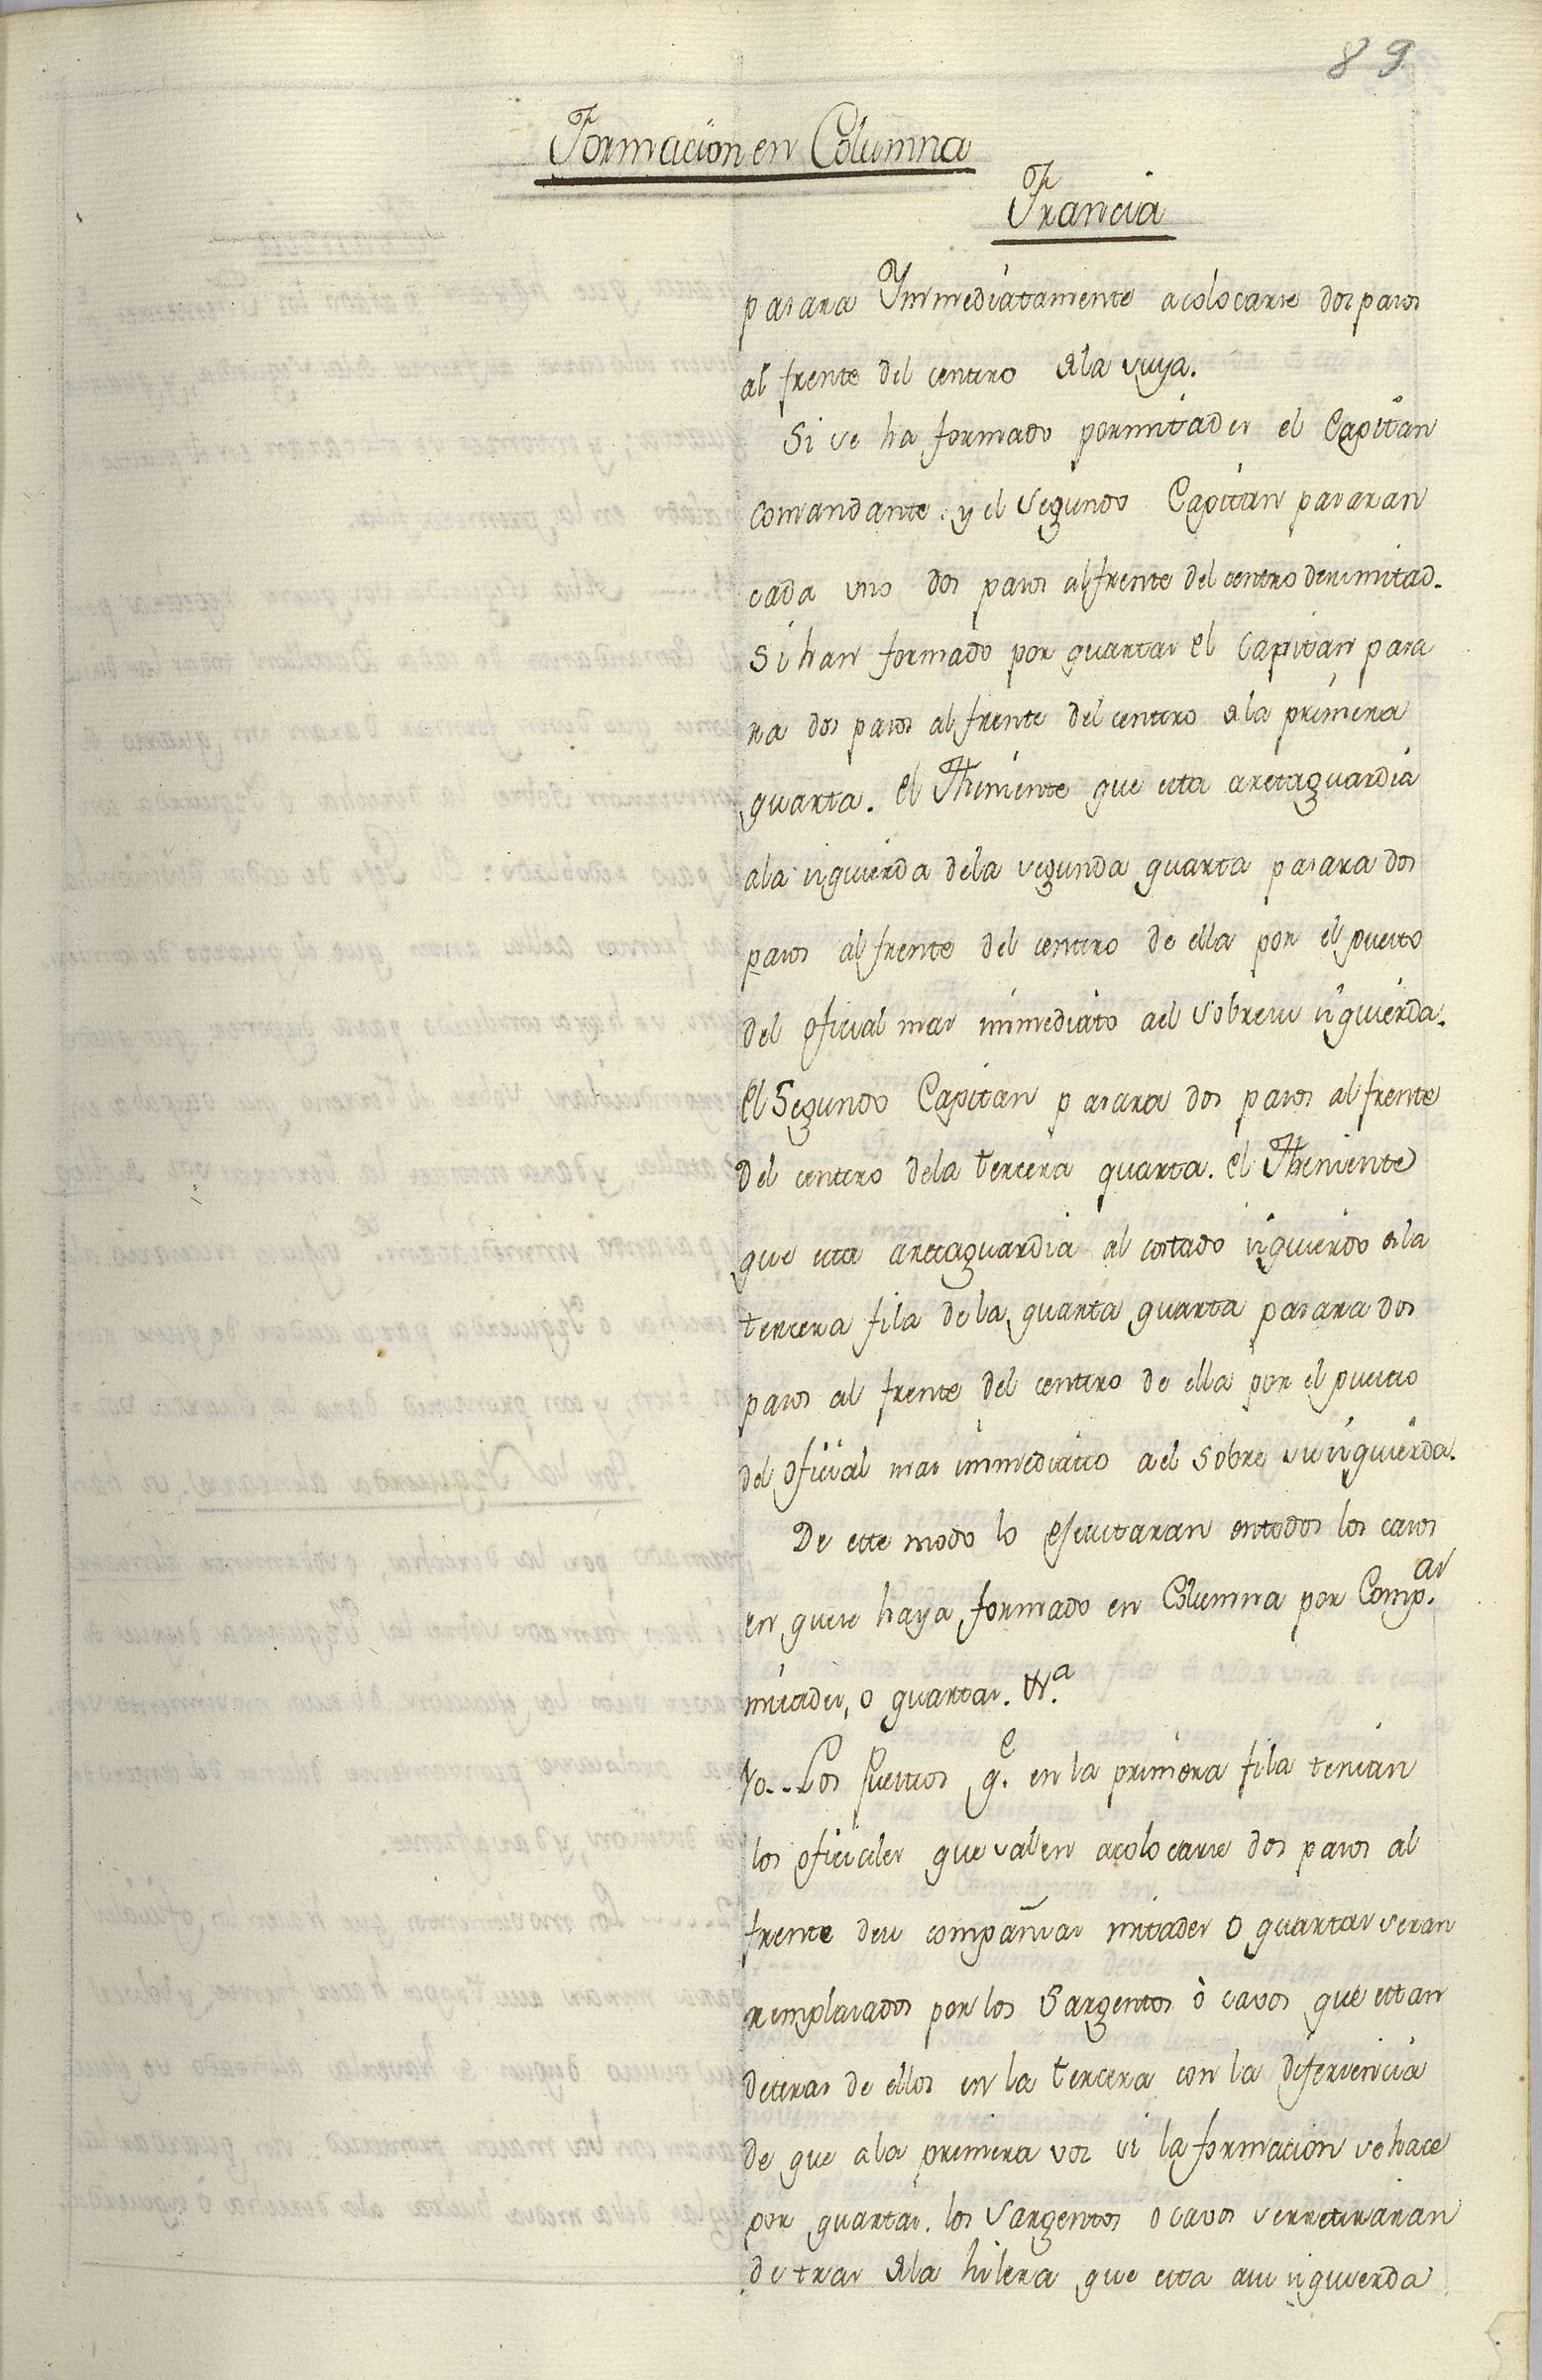 89
Formacion en Columna
Francia
pasara Ymmediatamente a colocarse dos pasos
al frente del centro dela suya.
Si se ha formado por mitades el Capitan
comandante. y el segundo Capitan pasaran
cada uno dos pasos al frente del centro desumitad.
Si han formado por quartas el capitan pasa
ra dos pasos al frente del centro dela primera
quarta. el Theniente que esta aretaguardia
ala izquierda dela segunda quarta pasara dos
pasos al frente del centro de ella por el puesto
del oficial mas immediato ael sobresu izquierda.
el Segundo Capitan pasara dos pasos al frente
del centro dela tercera quarta. el Theniente
que esta aretaguardia al costado izquierdo dela
tercera fila dela quarta quarta pasara dos
pasos al frente del centro de ella por el puesto
del oficial mas immediato ael sobre su izquierda.
De este modo lo ejecutaran entodos los casos
en quese haya formado en Columna por Comp.as
mitades, o quartas. &.a
10.. Los puestos q.e en la primera fila tenian
los oficiales que salen acolocarse dos pasos al
frente desu compañias mitades o quartas seran
remplasados por los Sargentos ò cavos que estan
detras de ellos en la tercera con la diferiencia
de que ala primera vos si la formacion se hace
por quartas. los Sargentos o cavos serretiraran
detras dela hilera que esta asu izquierda